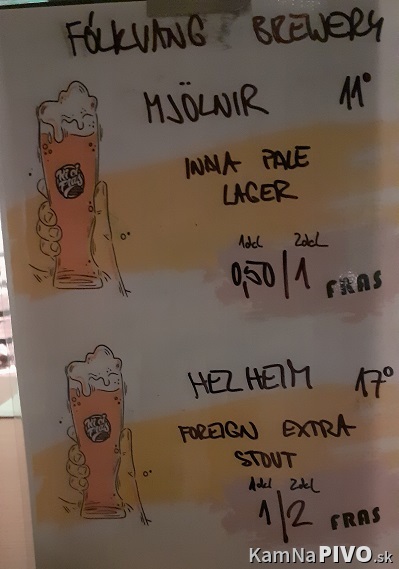 FÓLKVANG BREWERY
MJÖLNIR 11°
INDIA PALE
LAGER
1dcl 2dcl
0,50/1 FRAS
HELHEIM 17°
FOREIGN EXTRA
STOUT
1dcl 2dcl
1/2 FRAS
KamNaPIVO.sk